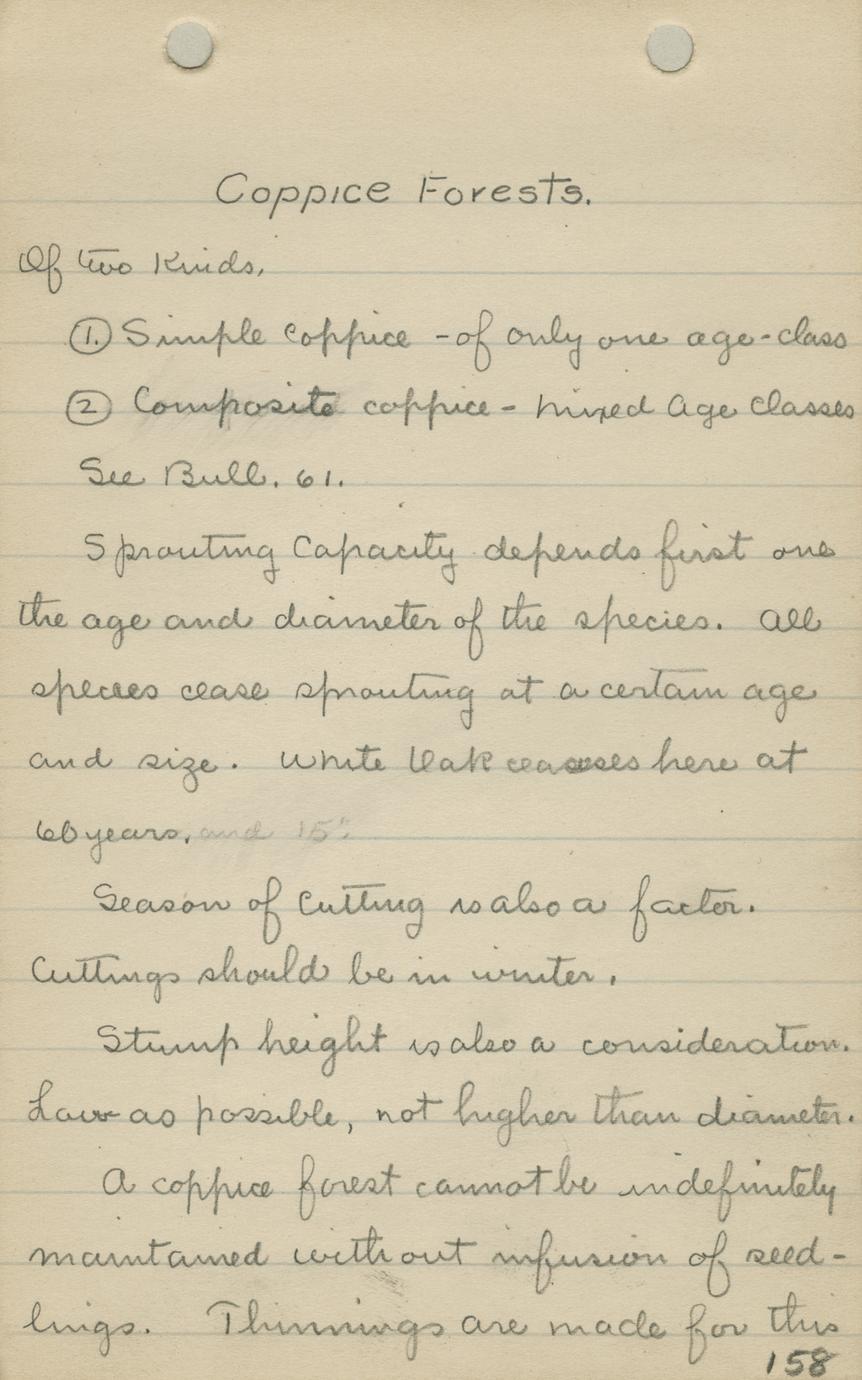 Coppice Forests.
Of two Kinds,
① Simple coppice - of only one age-class
② Composite coppice - mixed Age Classes
See Bull. 61.
Sprouting Capacity depends first one
the age and diameter of the species. All
species cease sprouting at a certain age
and size. White Oak ceases here at
60 years, and 15".
Season of Cutting is also a factor.
Cuttings should be in winter.
Stump height is also a consideration.
Low as possible, not higher than diameter.
A coppice forest cannot be indefinitely
maintained without infusion of seed-
lings. Thinnings are made for this
158